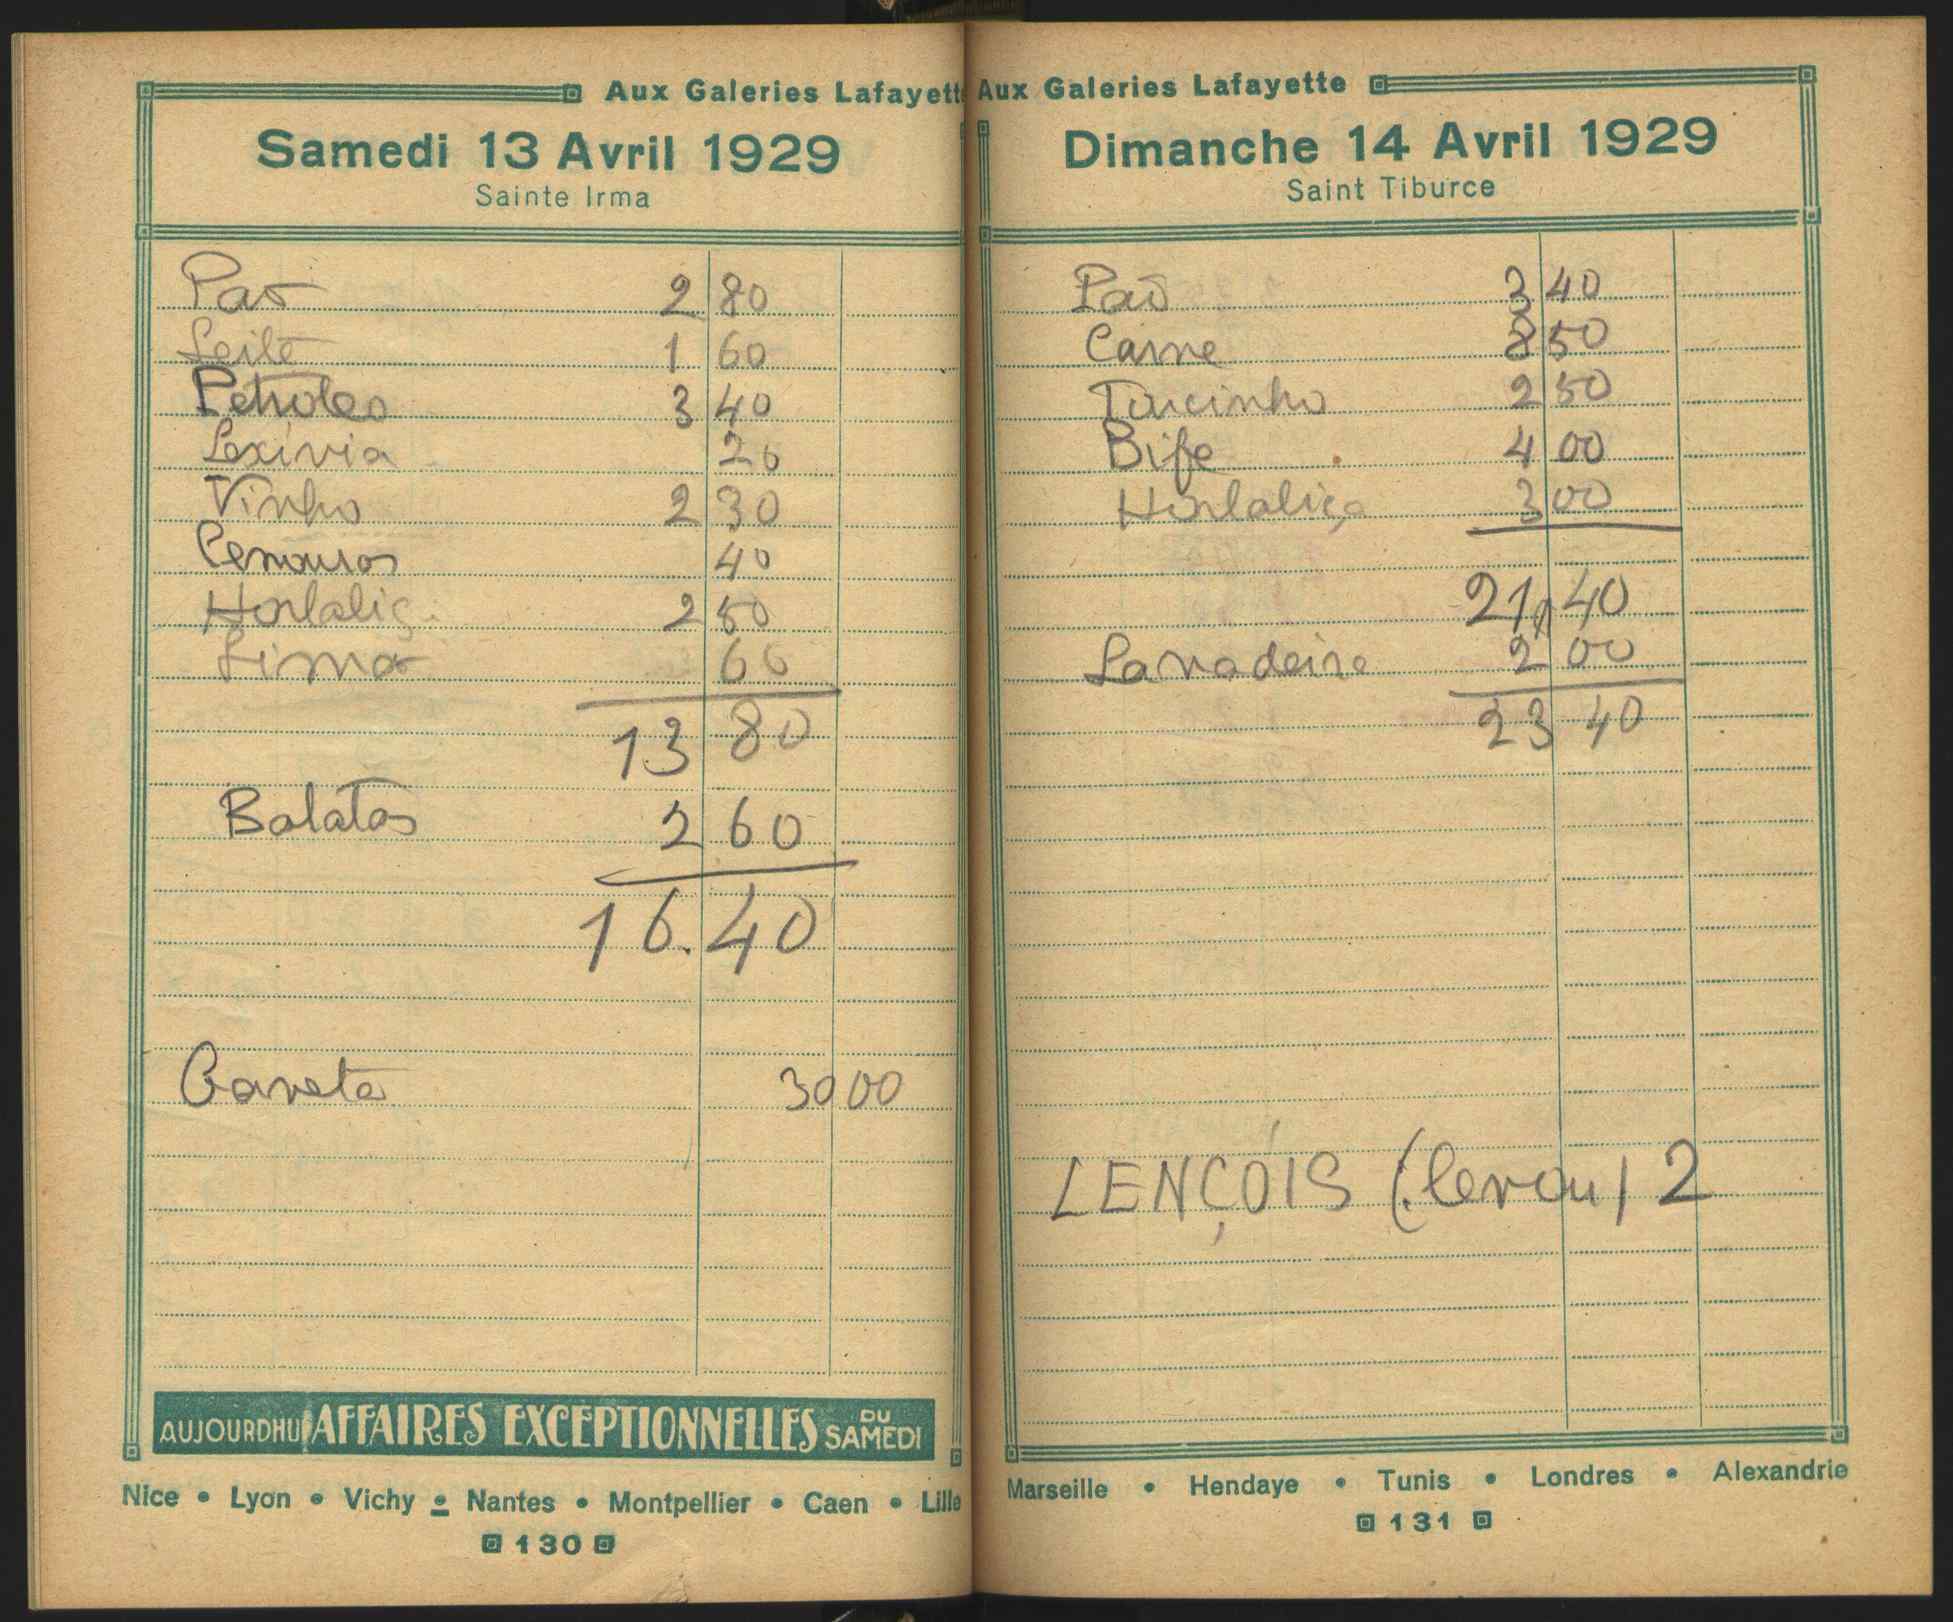 Aux Galeries Lafayette
Samedi 13 Avril 1929
Sainte Irma
Pão 2 80
Leite 1 60
Petroleo 3 40
Lexivia 20
Vinho 2 30
Cenouras 40
Hortaliç. 2 50
Lima 60
13 80
Batatas 2 60
16.40
Gaveta 30 00
AUJOURDHUI AFFAIRES EXCEPTIONNELLES DU SAMEDI
Nice • Lyon • Vichy • Nantes • Montpellier • Caen • Lille
130
Aux Galeries Lafayette
Dimanche 14 Avril 1929
Saint Tiburce
Pão 3 40
Carne 8 50
Toucinho 2 50
Bife 4 00
Hortaliça 3 00
21,40
Lavadeira 2 00
23 40
LENÇOIS (levou) 2
Marseille • Hendaye • Tunis • Londres • Alexandrie
131